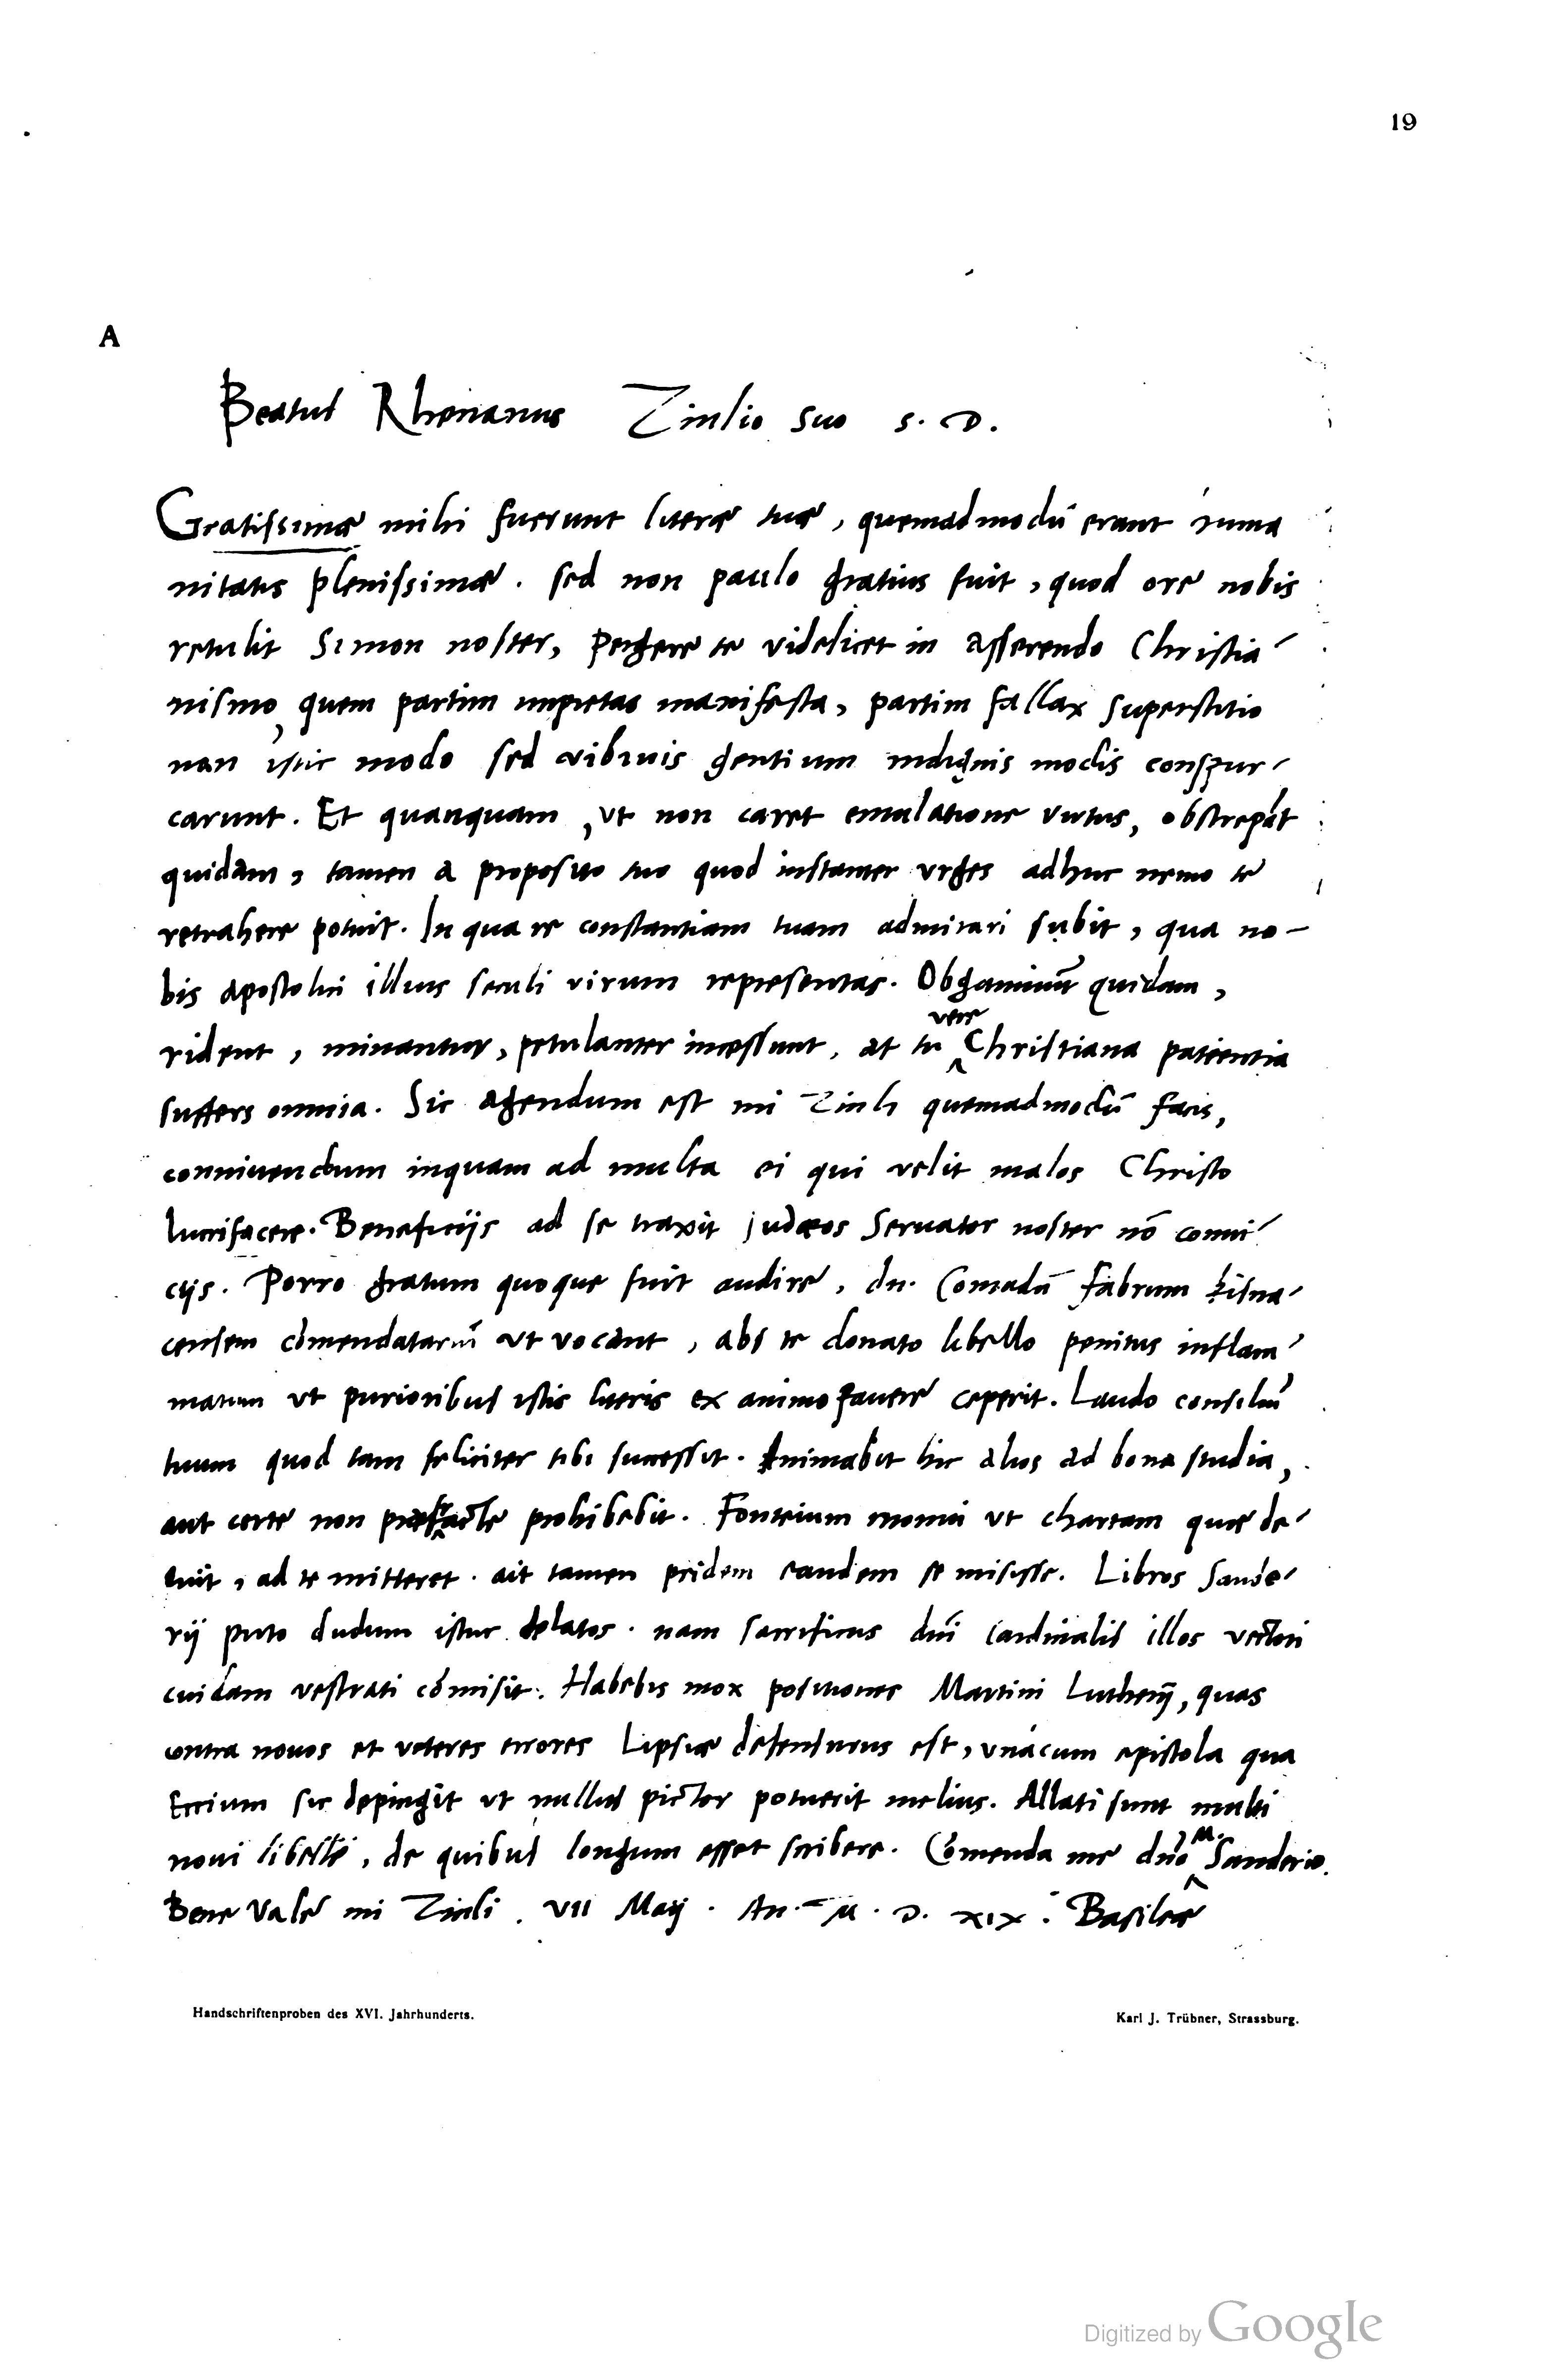 19
A
Beatus Rhenanus Zinlio suo s. D.
Gratissimæ mihi fuerunt literæ tuæ, quemadmodū erant
nitatis plenissimæ. sed non paulo gratius fuit, quod ore nobis
retulit Simon noster, pergere te videlicet in asserendo Christia-
nismo, quem partim impietas manifesta, partim fallax superstitio
non istic modo sed vibiuis gentium indignis modis conspur-
carunt. Et quanquam, vt non caret emulatione virtus, obstrepāt
quidam, tamen a proposito tuo quod instanter vrges adhuc nemo te
retrahere potuit. In qua re constantiam tuam admirari subit, qua no-
bis apostolici illius seculi virum representas. Obganniūt quidam,
rident, minantur, petulanter incessunt, at tu vere Christiana patientia
suffers omnia. Sic agendum est mi Zinli quemadmodū facis,
conniuendum inquam ad multa ei qui velit malos Christo
lucrifacere. Beneficijs ad se traxit judæos Seruator noster nō conui-
cijs. Porro gratum quoque fuit audire, dn. Conradū Fabrum kisna-
censem cōmendatariū vt vocant, abs te donato libello penitus inflam-
matum vt purioribus istis literis ex animo fauere ceperit. Laudo consiliū
tuum quod tam feliciter tibi successit. Animabit hic alios ad bona studia,
aut certe non præfracte prohibebit. Fonteium monui vt chartam quæ de-
fuit, ad te mitteret. ait tamen pridem eandem se misisse. Libros Sande-
rij puto dudum istuc delatos. nam sacrificus dni Cardinalis illos vectori
cuidam vestrati cōmisit. Habebis mox positiones Martini Lutherij, quas
contra nouos et veteres errores Lipsiæ defensurus est, vnácum epistola qua
Eccium sic depingit vt nullus pictor potuerit melius. Allati sunt multi
noui libelli, de quibus longum esset scribere. Cōmenda me dño M. Sanderio.
Bene Vale mi Zinli. VII Maij. An. M. D. XIX. Basileæ
Handschriftenproben des XVI. Jahrhunderts.
Karl J. Trübner, Strassburg.
Digitized by Google